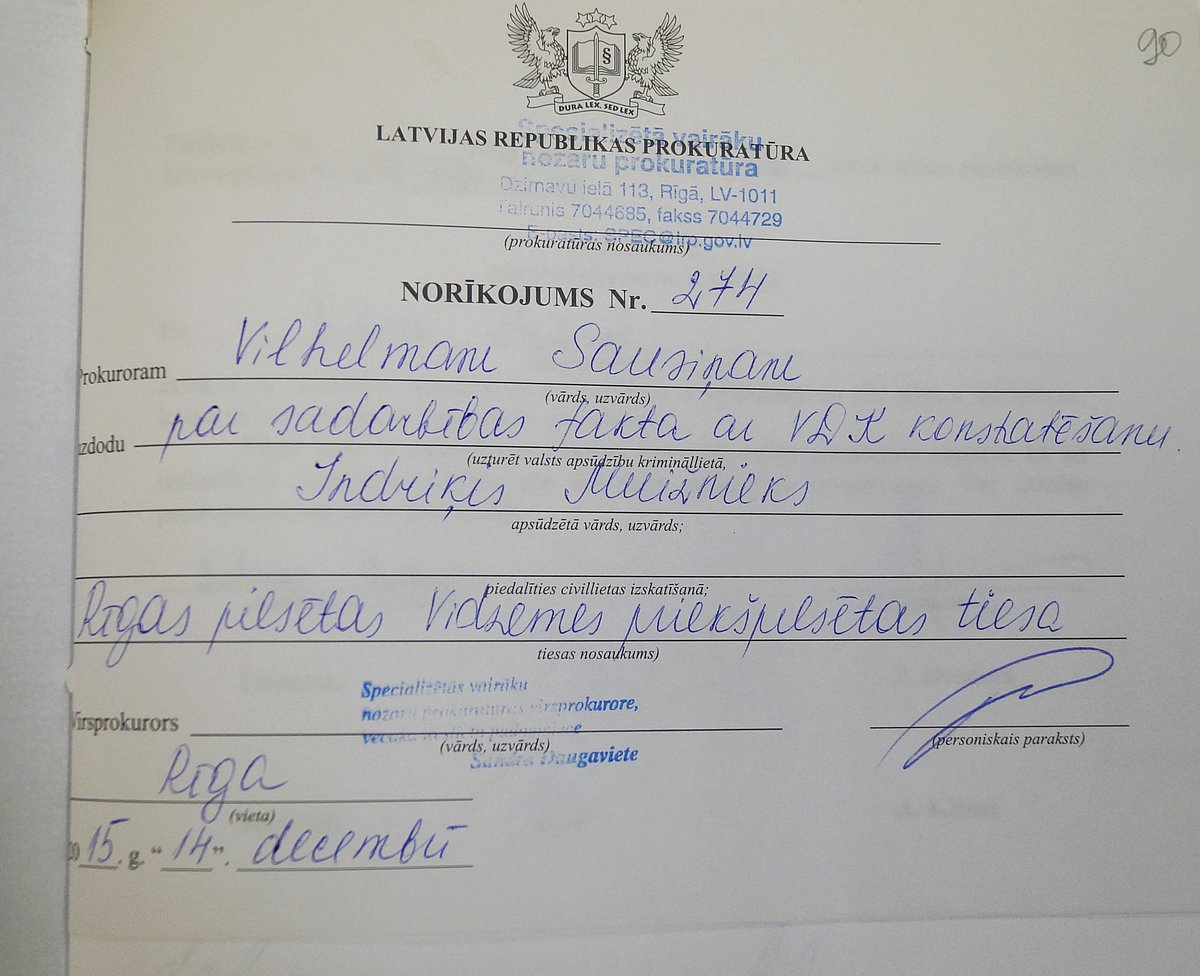 90
§
DURA LEX, SED LEX
LATVIJAS REPUBLIKAS PROKURATŪRA
Specializētā vairāku
nozaru prokuratūra
Dzirnavu ielā 113, Rīgā, LV-1011
Talrunis 7044685, fakss 7044729
E-pasts: SPEC@lrp.gov.lv
(prokuratūras nosaukums)
NORĪKOJUMS Nr. 274
Prokuroram Vilhelmam Sausiņam
(vārds, uzvārds)
izdodu par sadarbības fakta ar VDK konstatēšanu
(uzturēt valsts apsūdzību krimināllietā,
Indriķis Muižnieks
apsūdzētā vārds, uzvārds;
piedalīties civillietas izskatīšanā;
Rīgas pilsētas Vidzemes priekšpilsētas tiesa
tiesas nosaukums)
Specializētās vairāku
nozaru prokuratūras virsprokurore,
Virsprokurors
(vārds, uzvārds)
(personiskais paraksts)
Sandra Daugaviete
Rīga
(vieta)
2015. g. "14". decembrī